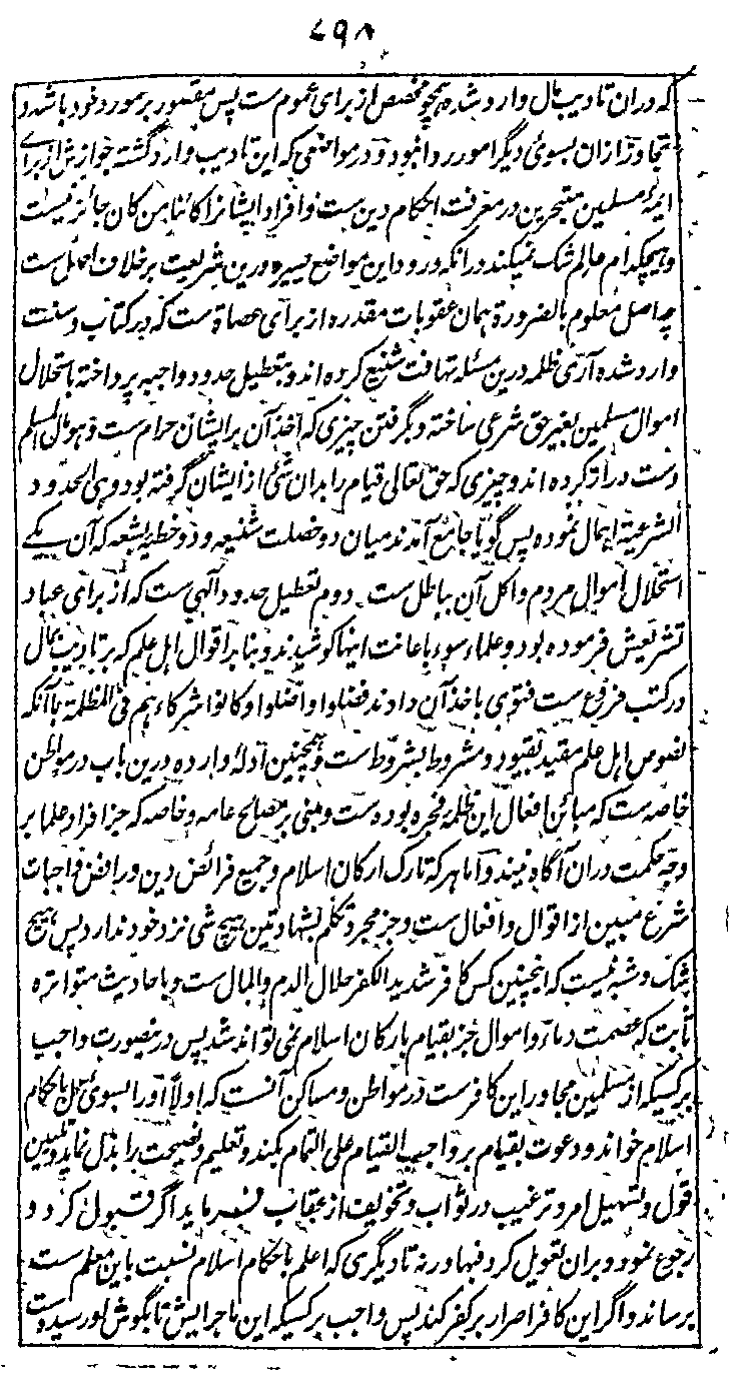 ٤٩٨
که دران تادیب بمال وارد شده همچو مخصص از برای عموم ست پس مقصور بر مورد خود باشد و
تجاوز ازان بسوئ دیگر امور روا نبود و در مواضعی که این تادیب وارد گشته جوازش از برای
ایمهٔ مسلمین متبحرین در معرفت احکام دین ست و افراد ایشانرا کائنا من کان جائز نیست
و هیچکدام عالم شک نمیکند درانکه ورود این مواضع یسیره درین شریعت برخلاف اصل ست
چه اصل معلوم بالضرورة همان عقوبات مقدره از برای عصاة ست که در کتاب و سنت
وارد شده آری ظلمه درین مسئله تهافت شنیع کرده اند و بتعطیل حدود واجبه پرداخته باستحلال
اموال مسلمین بغیر حق شرعی ساخته و بگرفتن چیزی که اخذ آن بر ایشان حرام ست و هو مال المسلم
دست دراز کرده اند و چیزی که حق تعالی قیام را بدان شئ از ایشان گرفته بود و هی الحدود
الشرعیة اهمال نموده پس گویا جامع آمدند میان دو خصلت شنیعه و دو خطیهٔ بشعه که آن یکے
استحلال اموال مردم و اکل آن بباطل ست دوم تعطیل حدود آلهی ست که از برای عباد
تشریعش فرموده بود و علماء سوء باعانت اینها کوشیدند و بنابر اقوال اهل علم که بر تادیب بمال
در کتب فروع ست فتوی باخذ آن دادند فضلوا و اضلوا و کانوا شرکاءهم فی المظلمة باآنکه
نصوص اهل علم مقید بقیود و مشروط بشروط است و همچنین ادلهٔ وارده درین باب در مواطن
خاصه ست که مبائن افعال این ظلمه فجره بوده ست و مبنی بر مصالح عامه و خاصه که جز افراد علما بر
وجه حکمت دران آگاه نیند و اما هر که تارک ارکان اسلام و جمیع فرائض دین و رافض واجبات
شرع مبین از اقوال و افعال ست و جز مجرد تکلم بشهادتین هیچ شی نزد خود ندارد پس هیچ
شک و شبه نیست که اینچنین کس کافر شدید الکفر حلال الدم و المال ست و باحادیث متواتره
ثابت که عصمت دماء و اموال جز بقیام بارکان اسلام نمی تواند شد پس درینصورت واجب
بر کسیکه از مسلمین مجاور این کافر ست در مواطن و مساکن آنست که اولا اورا بسوئ عمل باحکام
اسلام خواند و دعوت بقیام بر واجب القیام علی التمام بکند و تعلیم و نصیحت را بذل نماید و تلیین
قول و تسهیل امر و ترغیب در ثواب و تخویف از عقاب فرماید اگر قبول کرد و
رجوع نمود و بران تعویل کرد فبها ورنه تا دیگری که اعلم باحکام اسلام نسبت باین معلم ست
برساند و اگر این کافر اصرار بر کفر کند پس واجب بر کسیکه این ماجرایش تا بگوش او رسیده ست